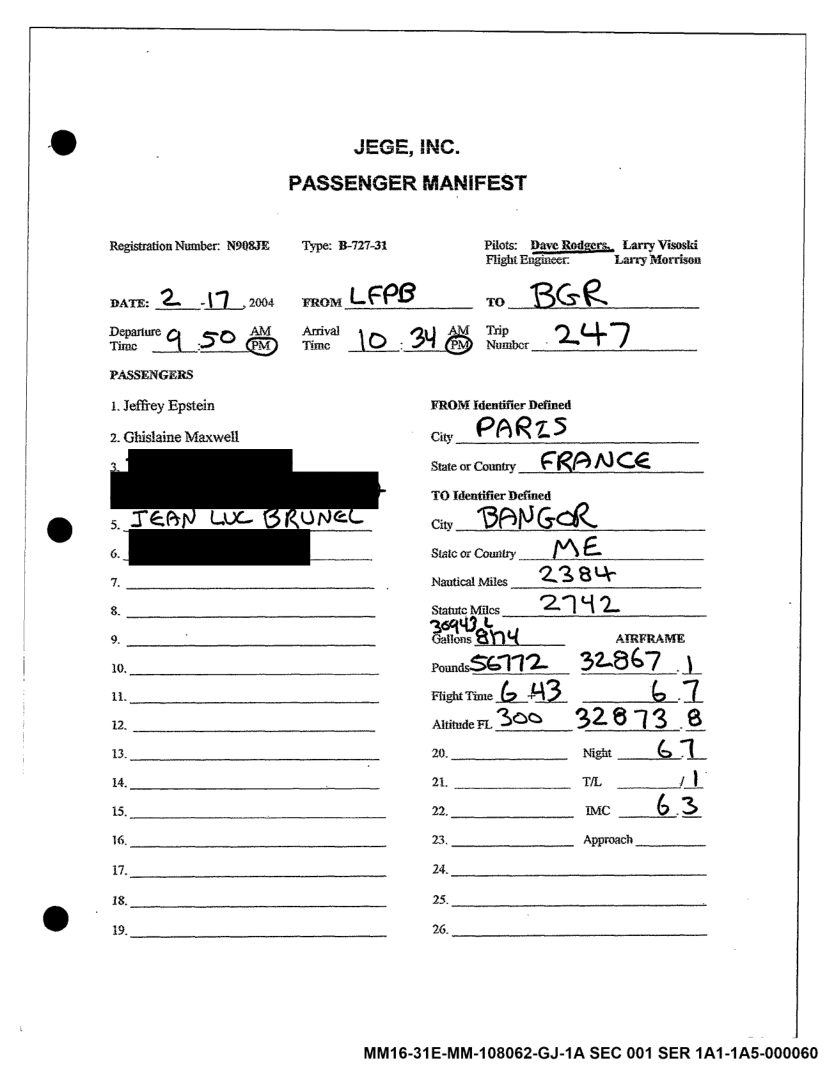 JEGE, INC.
PASSENGER MANIFEST
Registration Number: N908JE Type: B-727-31 Pilots: Dave Rodgers, Larry Visoski
Flight Engineer: Larry Morrison
DATE: 2 -17, 2004 FROM LFPB TO BGR
Departure Time 9 :50 AM (PM) Arrival Time 10 : 34 AM (PM) Trip Number 247
PASSENGERS
1. Jeffrey Epstein
2. Ghislaine Maxwell
3.
5. JEAN LUC BRUNEL
6.
7.
8.
9.
10.
11.
12.
13.
14.
15.
16.
17.
18.
19.
FROM Identifier Defined
City PARIS
State or Country FRANCE
TO Identifier Defined
City BANGOR
State or Country ME
Nautical Miles 2384
Statute Miles 2742
36943 L
Gallons AIRFRAME
Pounds 56772 32867 .1
Flight Time 6 +43 6 .7
Altitude FL 300 32873 .8
20. Night 6.7
21. T/L / 1
22. IMC 6.3
23. Approach
24.
25.
26.
MM16-31E-MM-108062-GJ-1A SEC 001 SER 1A1-1A5-000060